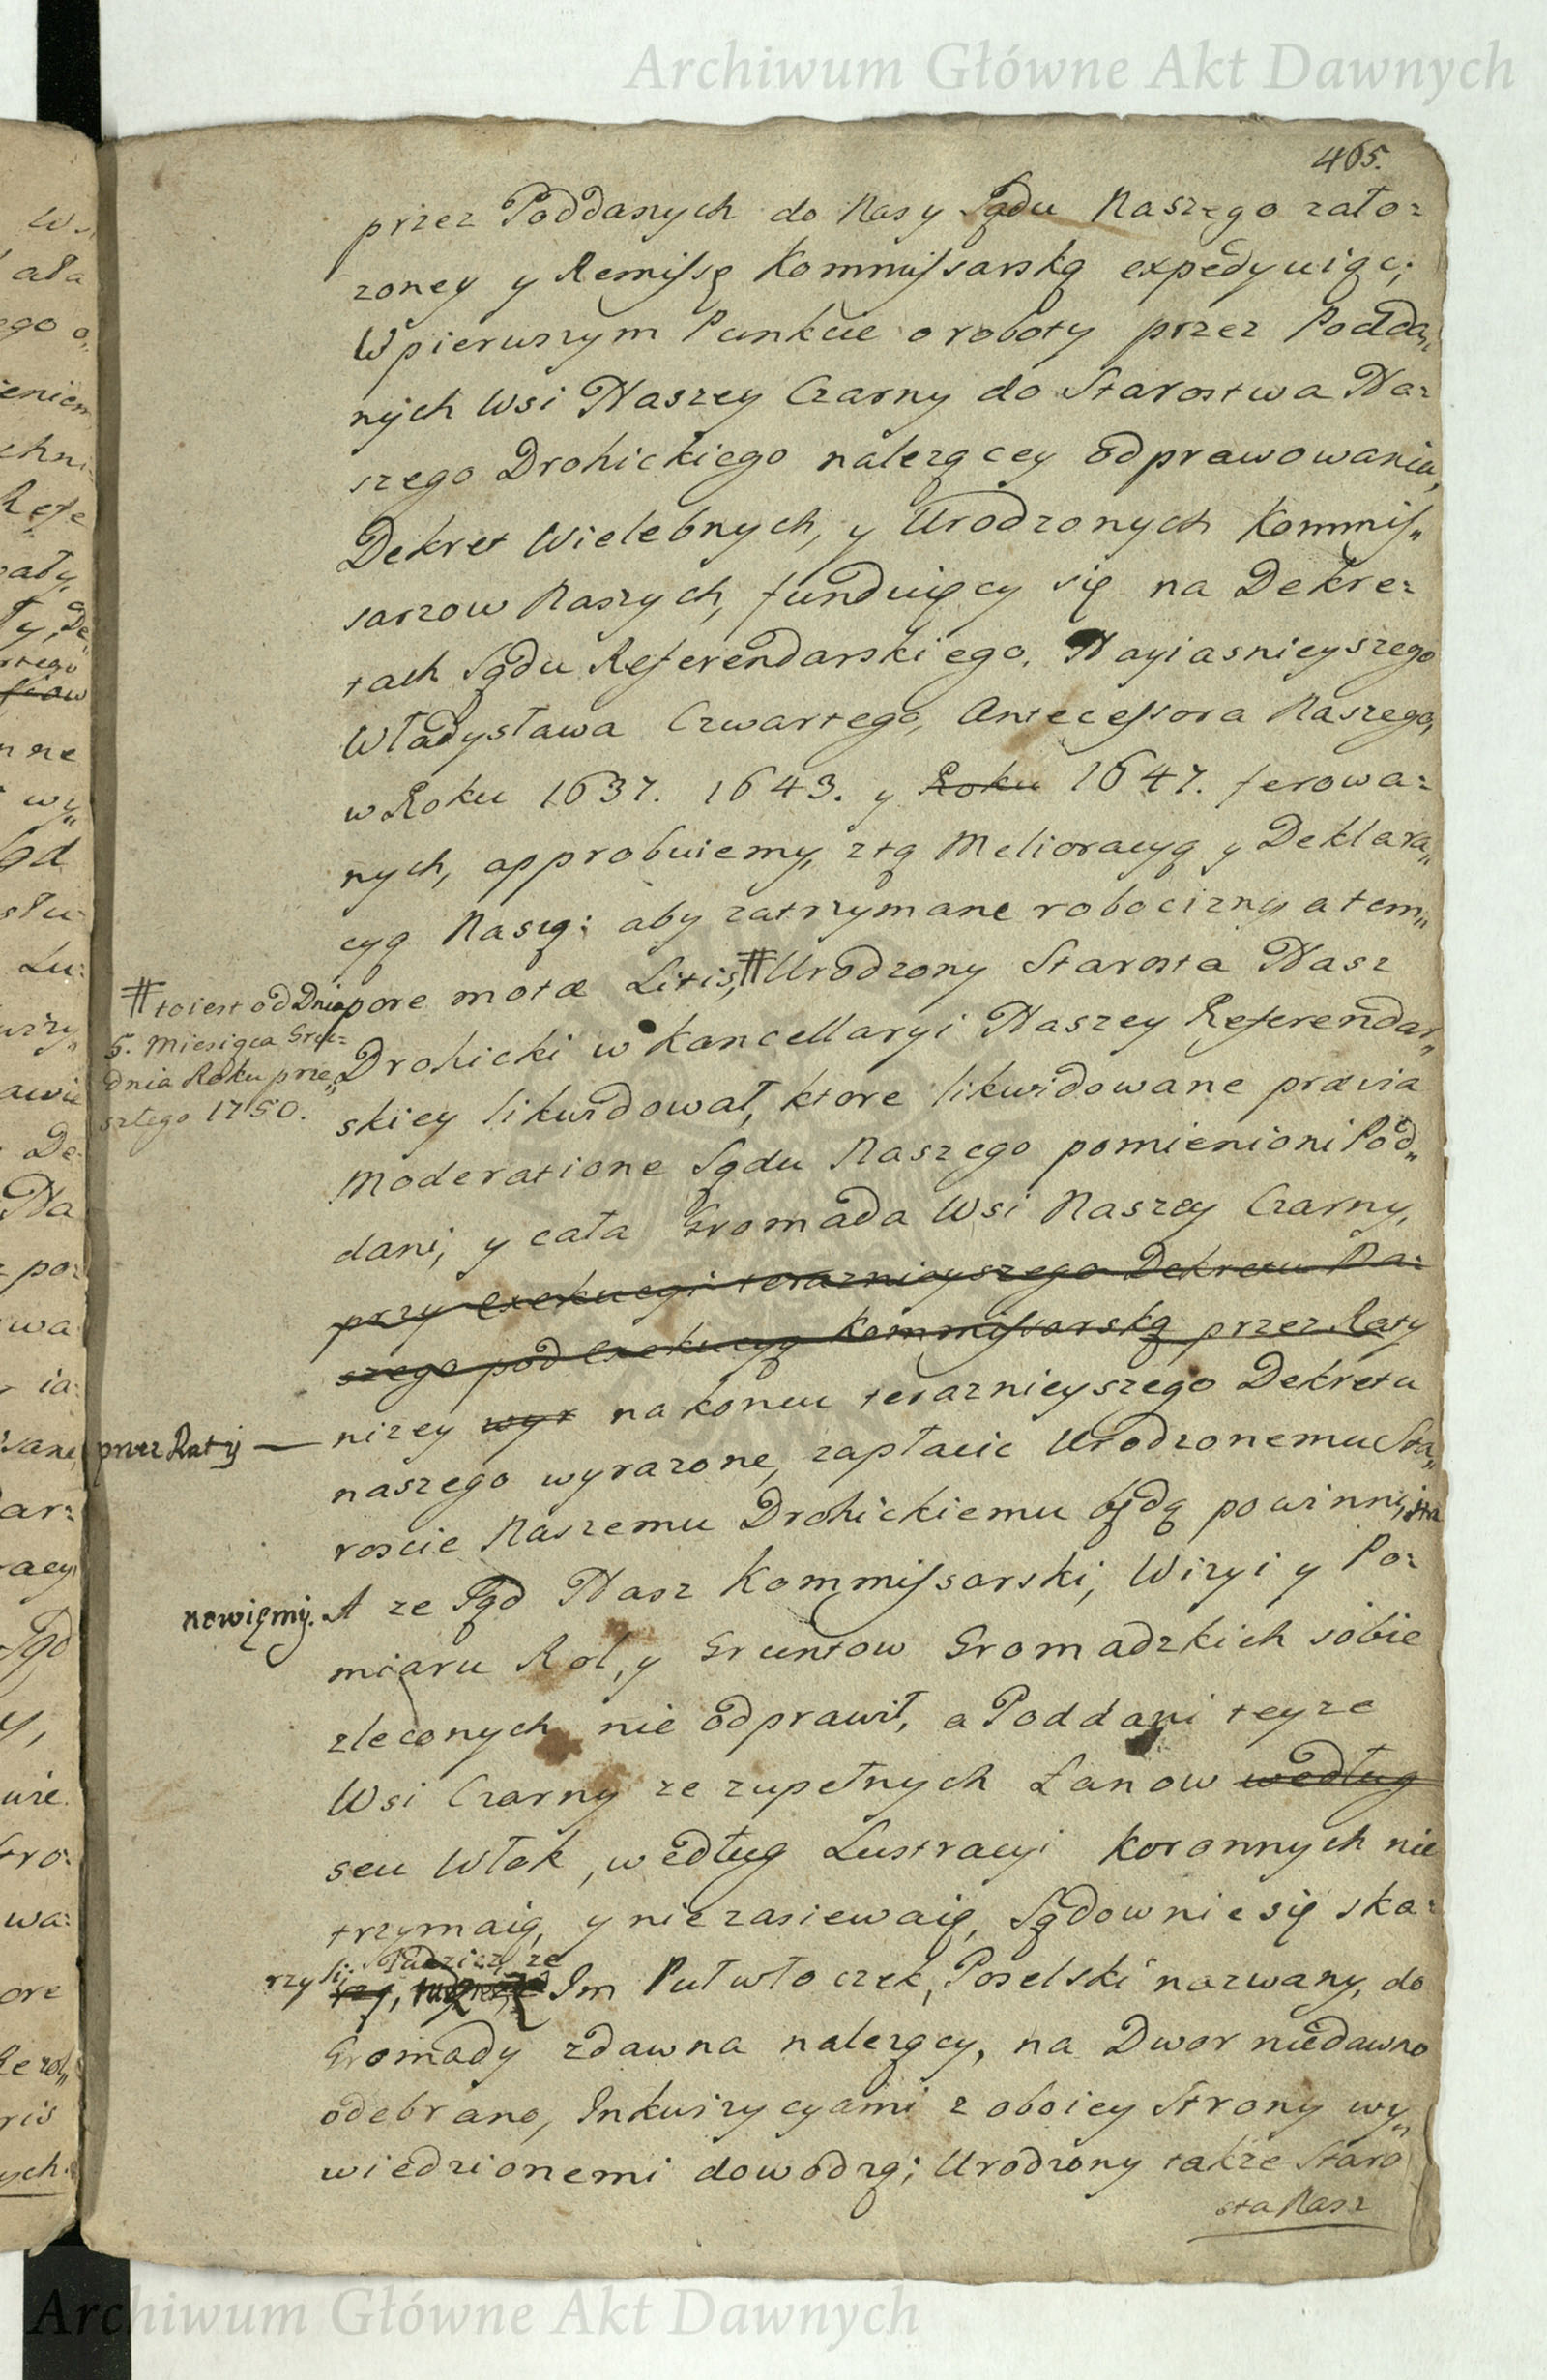 Archiwum Główne Akt Dawnych
465.
przez Poddanych do Nas y Sądu Naszego zało=
zoney y Remissę Kommissarską expedyuiąc;
W pierwszym Punkcie o roboty przez Podda„
nych Wsi Naszey Czarny do Starostwa Na=
szego Drohickiego nalezącey odprawowania,
Dekret Wielebnych, y Urodzonych Kommis„
sarzow Naszych, funduiący się na Dekre=
tach Sądu Referendarskiego, Nayiasnieyszego
Władysława Czwartego, Antecessora Naszego,
w Roku 1637. 1643. y Roku 1647. ferowa=
nych, approbuiemy, z tą Melioracyą y Deklara„
cyą Naszą: aby zatrzymane robocizny a tem„
pore motæ Litis, # Urodzony Starosta Nasz
# to iest od Dnia
5. Miesiąca Gru=
dnia Roku prze„
szłego 1750.
Drohicki w Kancellaryi Naszey Referendar„
skiey likwidował, ktore likwidowane prævia
Moderatione Sądu Naszego pomienioni Pod„
dani, y cała Gromada Wsi Naszey Czarny,
przy Exekucyi teraznieyszego Dekretu Na=
szego pod Exekucyą Kommissarską przez Raty
nizey wyr na koncu teraznieyszego Dekretu
przez Raty —
naszego wyrazone, zapłacic Urodzonemu Sta„
roscie Naszemu Drohickiemu będą powinni,
nowiemy. A ze Sąd Nasz Kommissarski, Wizyi y Po=
miaru Rol, y Gruntow Gromadzkich sobie
zleconych nie odprawił, a Poddani teyze
Wsi Czarny ze zupełnych Łanow według
seu Włok, według Lustracyi Koronnych nie
trzymaią, y nie zasiewaią, Sądownie się ska=
rzyli: Tudziez ze
Im Pułwłoczek, Poselski nazwany, do
Gromady zdawna nalezący, na Dwor niedawno
odebrano, Inkwizycyami z oboiey Strony wy„
wiedzionemi dowodzą; Urodzony takze Staro
sta Nasz
Archiwum Główne Akt Dawnych